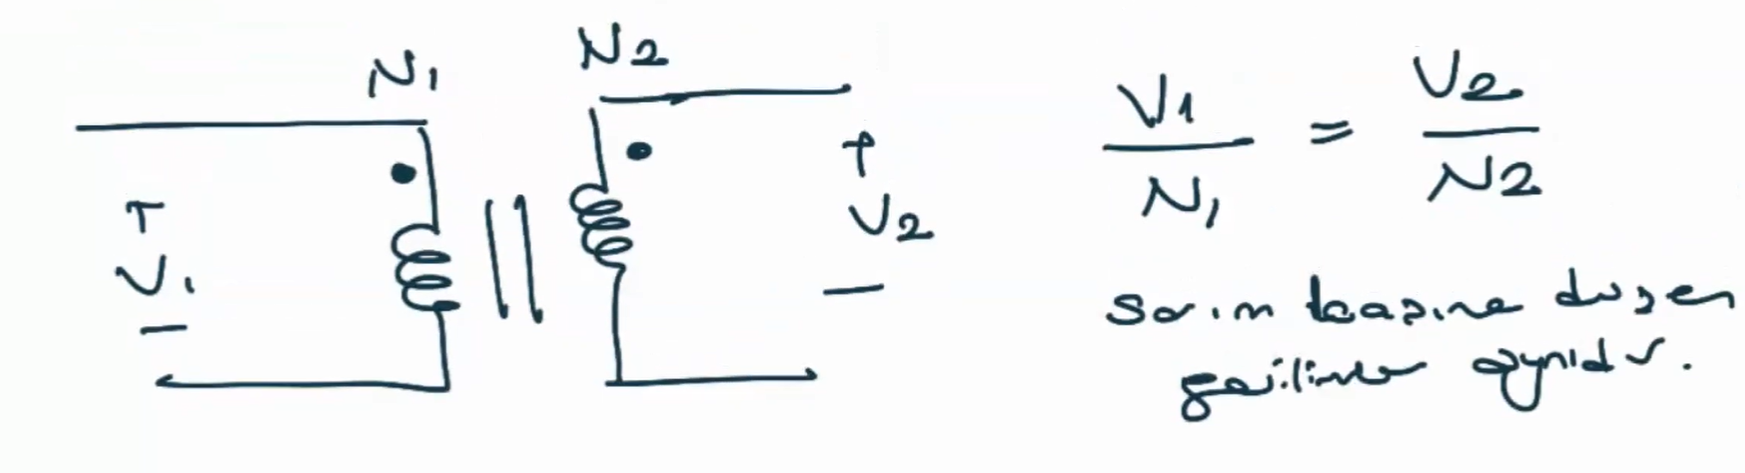 N1
N2
+
V1
-
+
V2
-
V1/N1 = V2/N2
Sarım başına düşen
gerilimler aynıdır.